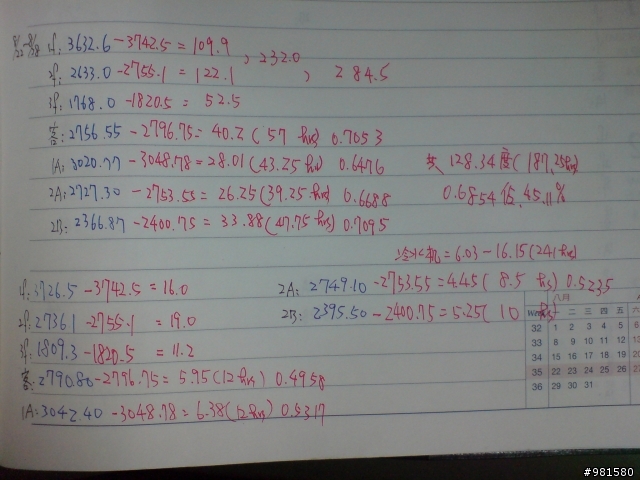 8/22-8/28 1f: 3632.6-3742.5=109.9, 232.0
2f: 2633.0-2755.1=122.1, 284.5
3f: 1768.0-1820.5=52.5
客: 2756.55-2796.75=40.2(57 hrs) 0.7053
1A: 3020.77-3048.78=28.01(43.25 hrs) 0.6476 共 128.34度(187.25hrs)
2A: 2727.30-2753.55=26.25(39.25 hrs) 0.6688 0.6854 佔 45.11%
2B: 2366.87-2400.75=33.88(47.75 hrs) 0.7095
冷水机=6.03-16.15(241hrs)
1f: 3726.5-3742.5=16.0 2A: 2749.10-2753.55=4.45(8.5 hrs) 0.5235
2f: 2736.1-2755.1=19.0 2B: 2395.50-2400.75=5.25(10 hrs)
3f: 1809.3-1820.5=11.2
客: 2790.80-2796.75=5.95(12hrs) 0.4958
1A: 3042.40-3048.78=6.38(12hrs) 0.5317
八月
Wk 一 二 三 四 五 六
32 1 2 3 4 5 6
33 8 9 10 11 12 13
34 15 16 17 18 19
35 22 23 24 25 26 27
36 29 30 31
#981580